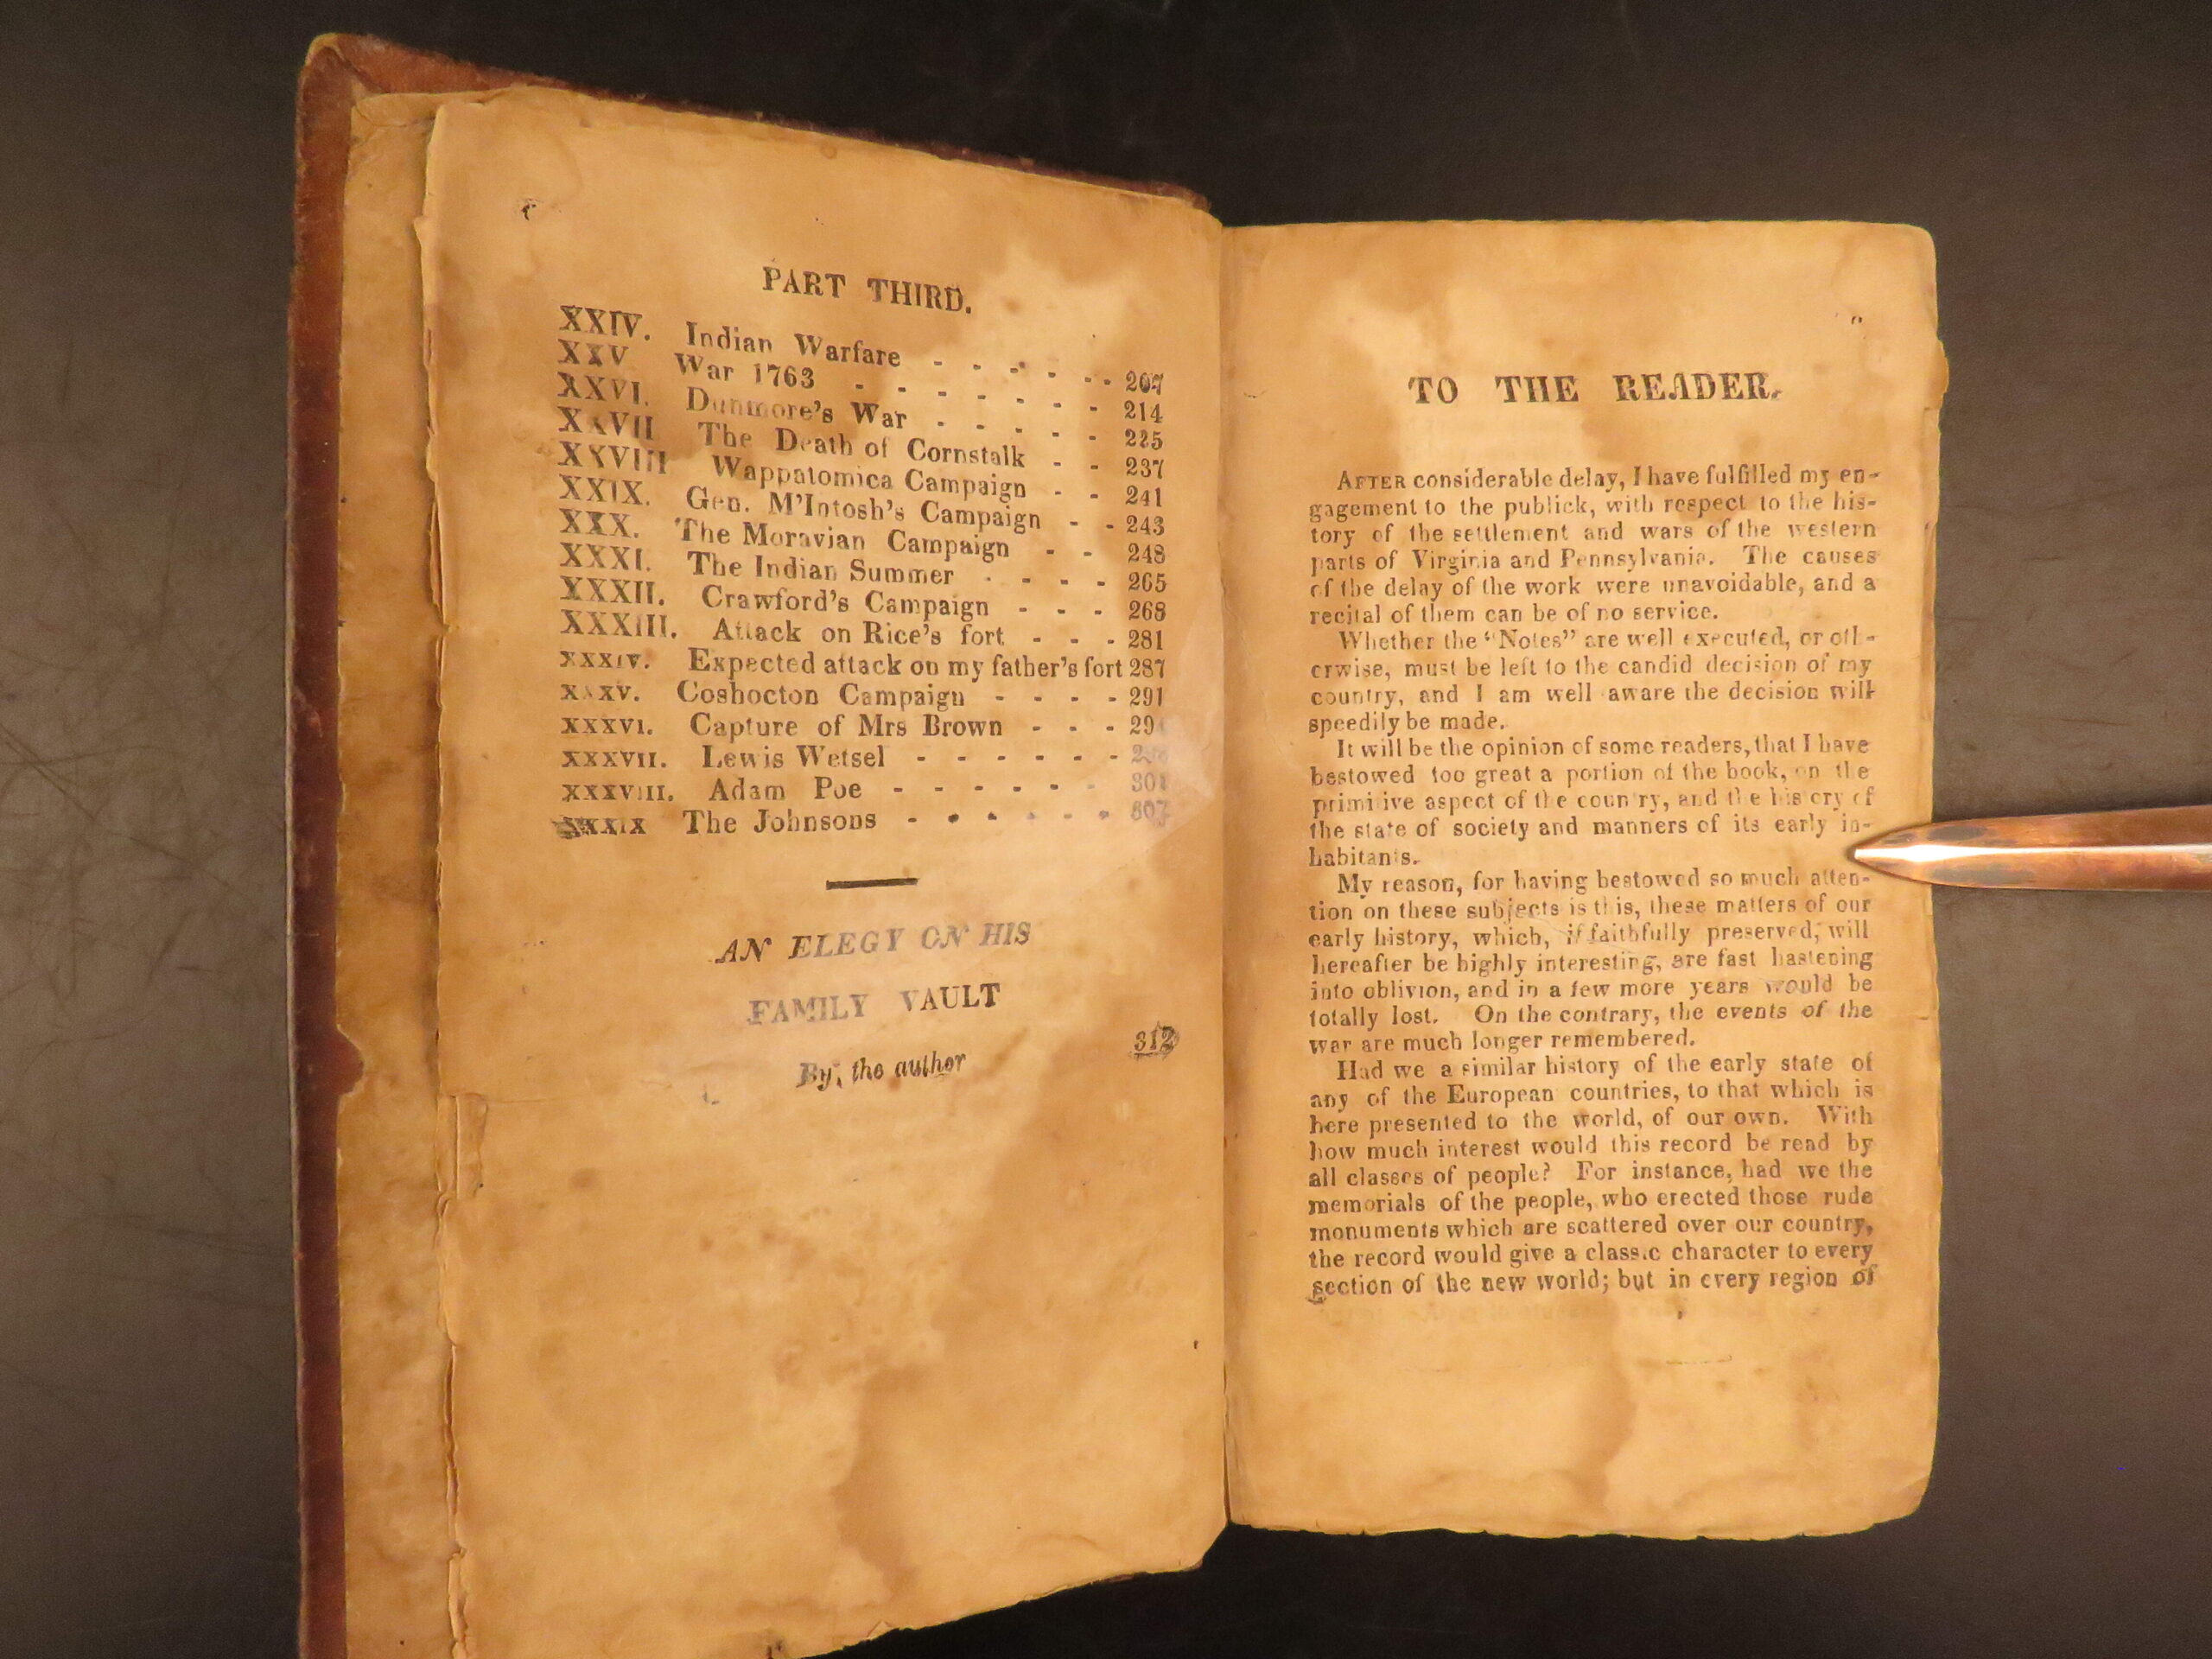 PART THIRD.
XXIV. Indian Warfare - - - - - - 207
XXV War 1763 - - - - - - - 214
XXVI. Dunmore's War - - - - - 225
XXVII The Death of Cornstalk - - 237
XXVIII Wappatomica Campaign - - 241
XXIX. Gen. M'Intosh's Campaign - - 243
XXX. The Moravian Campaign - - 248
XXXI. The Indian Summer - - - - 265
XXXII. Crawford's Campaign - - - 268
XXXIII. Attack on Rice's fort - - - 281
XXXIV. Expected attack on my father's fort 287
XXXV. Coshocton Campaign - - - - 291
XXXVI. Capture of Mrs Brown - - -
XXXVII. Lewis Wetsel - - - - - -
XXXVIII. Adam Poe - - - - - -
XXXIX The Johnsons - - - - - -
AN ELEGY ON HIS
FAMILY VAULT
By, the author
312
TO THE READER.
AFTER considerable delay, I have fulfilled my en-
gagement to the publick, with respect to the his-
tory of the settlement and wars of the western
parts of Virginia and Pennsylvania. The causes
of the delay of the work were unavoidable, and a
recital of them can be of no service.
Whether the "Notes" are well executed, or oth-
erwise, must be left to the candid decision of my
country, and I am well aware the decision will
speedily be made.
It will be the opinion of some readers, that I have
bestowed too great a portion of the book, on the
primitive aspect of the country, and the history of
the state of society and manners of its early in-
habitants.
My reason, for having bestowed so much atten-
tion on these subjects is this, these matters of our
early history, which, if faithfully preserved, will
hereafter be highly interesting, are fast hastening
into oblivion, and in a few more years would be
totally lost. On the contrary, the events of the
war are much longer remembered.
Had we a similar history of the early state of
any of the European countries, to that which is
here presented to the world, of our own. With
how much interest would this record be read by
all classes of people? For instance, had we the
memorials of the people, who erected those rude
monuments which are scattered over our country,
the record would give a classic character to every
section of the new world; but in every region of